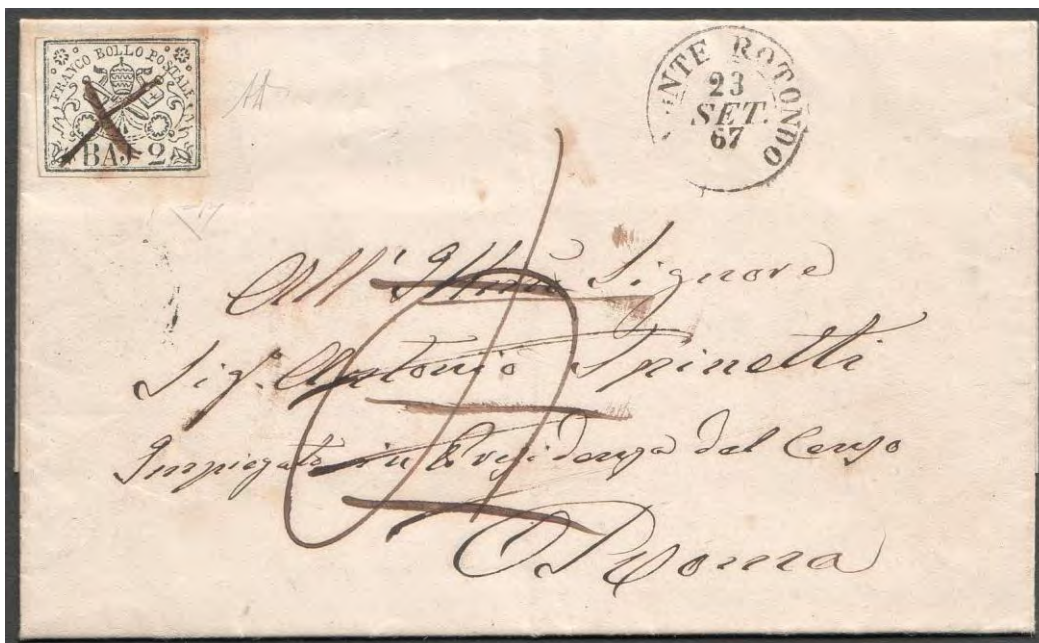 FRANCO BOLLO POSTALE
BAJ 2
NTE ROTONDO
23
SET.
67
All' Illmo Signore
Sig. Antonio Spinetti
Impiegato in Presidenza del Censo
Roma